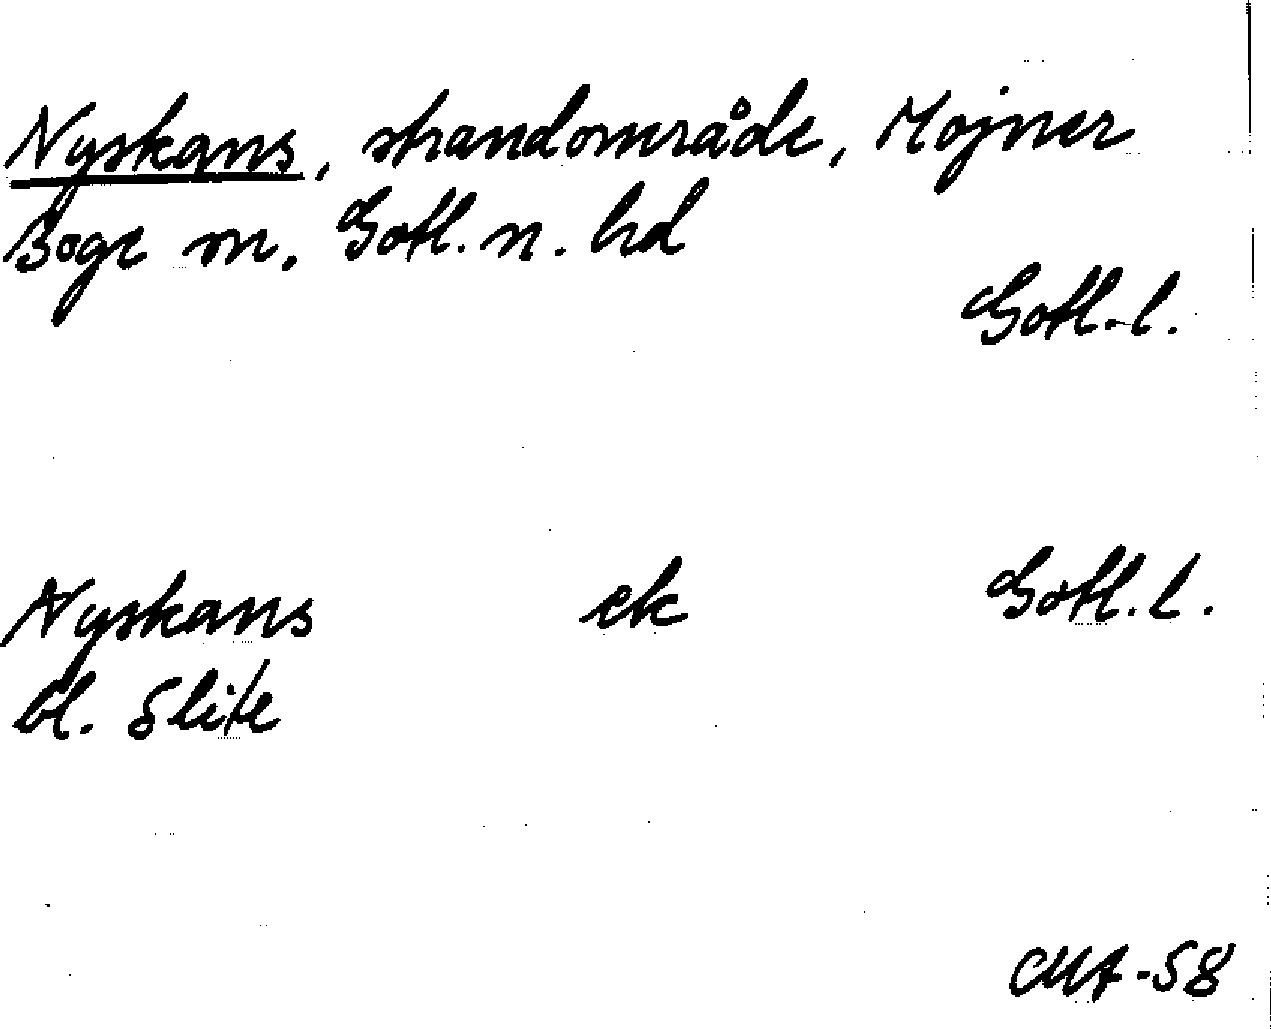 Nyskans, strandområde, Mojner
Boge sn. Gotl. n. hd
Gotl. l.
Nyskans ek Gotl. l.
bl. Slite
CMA-58